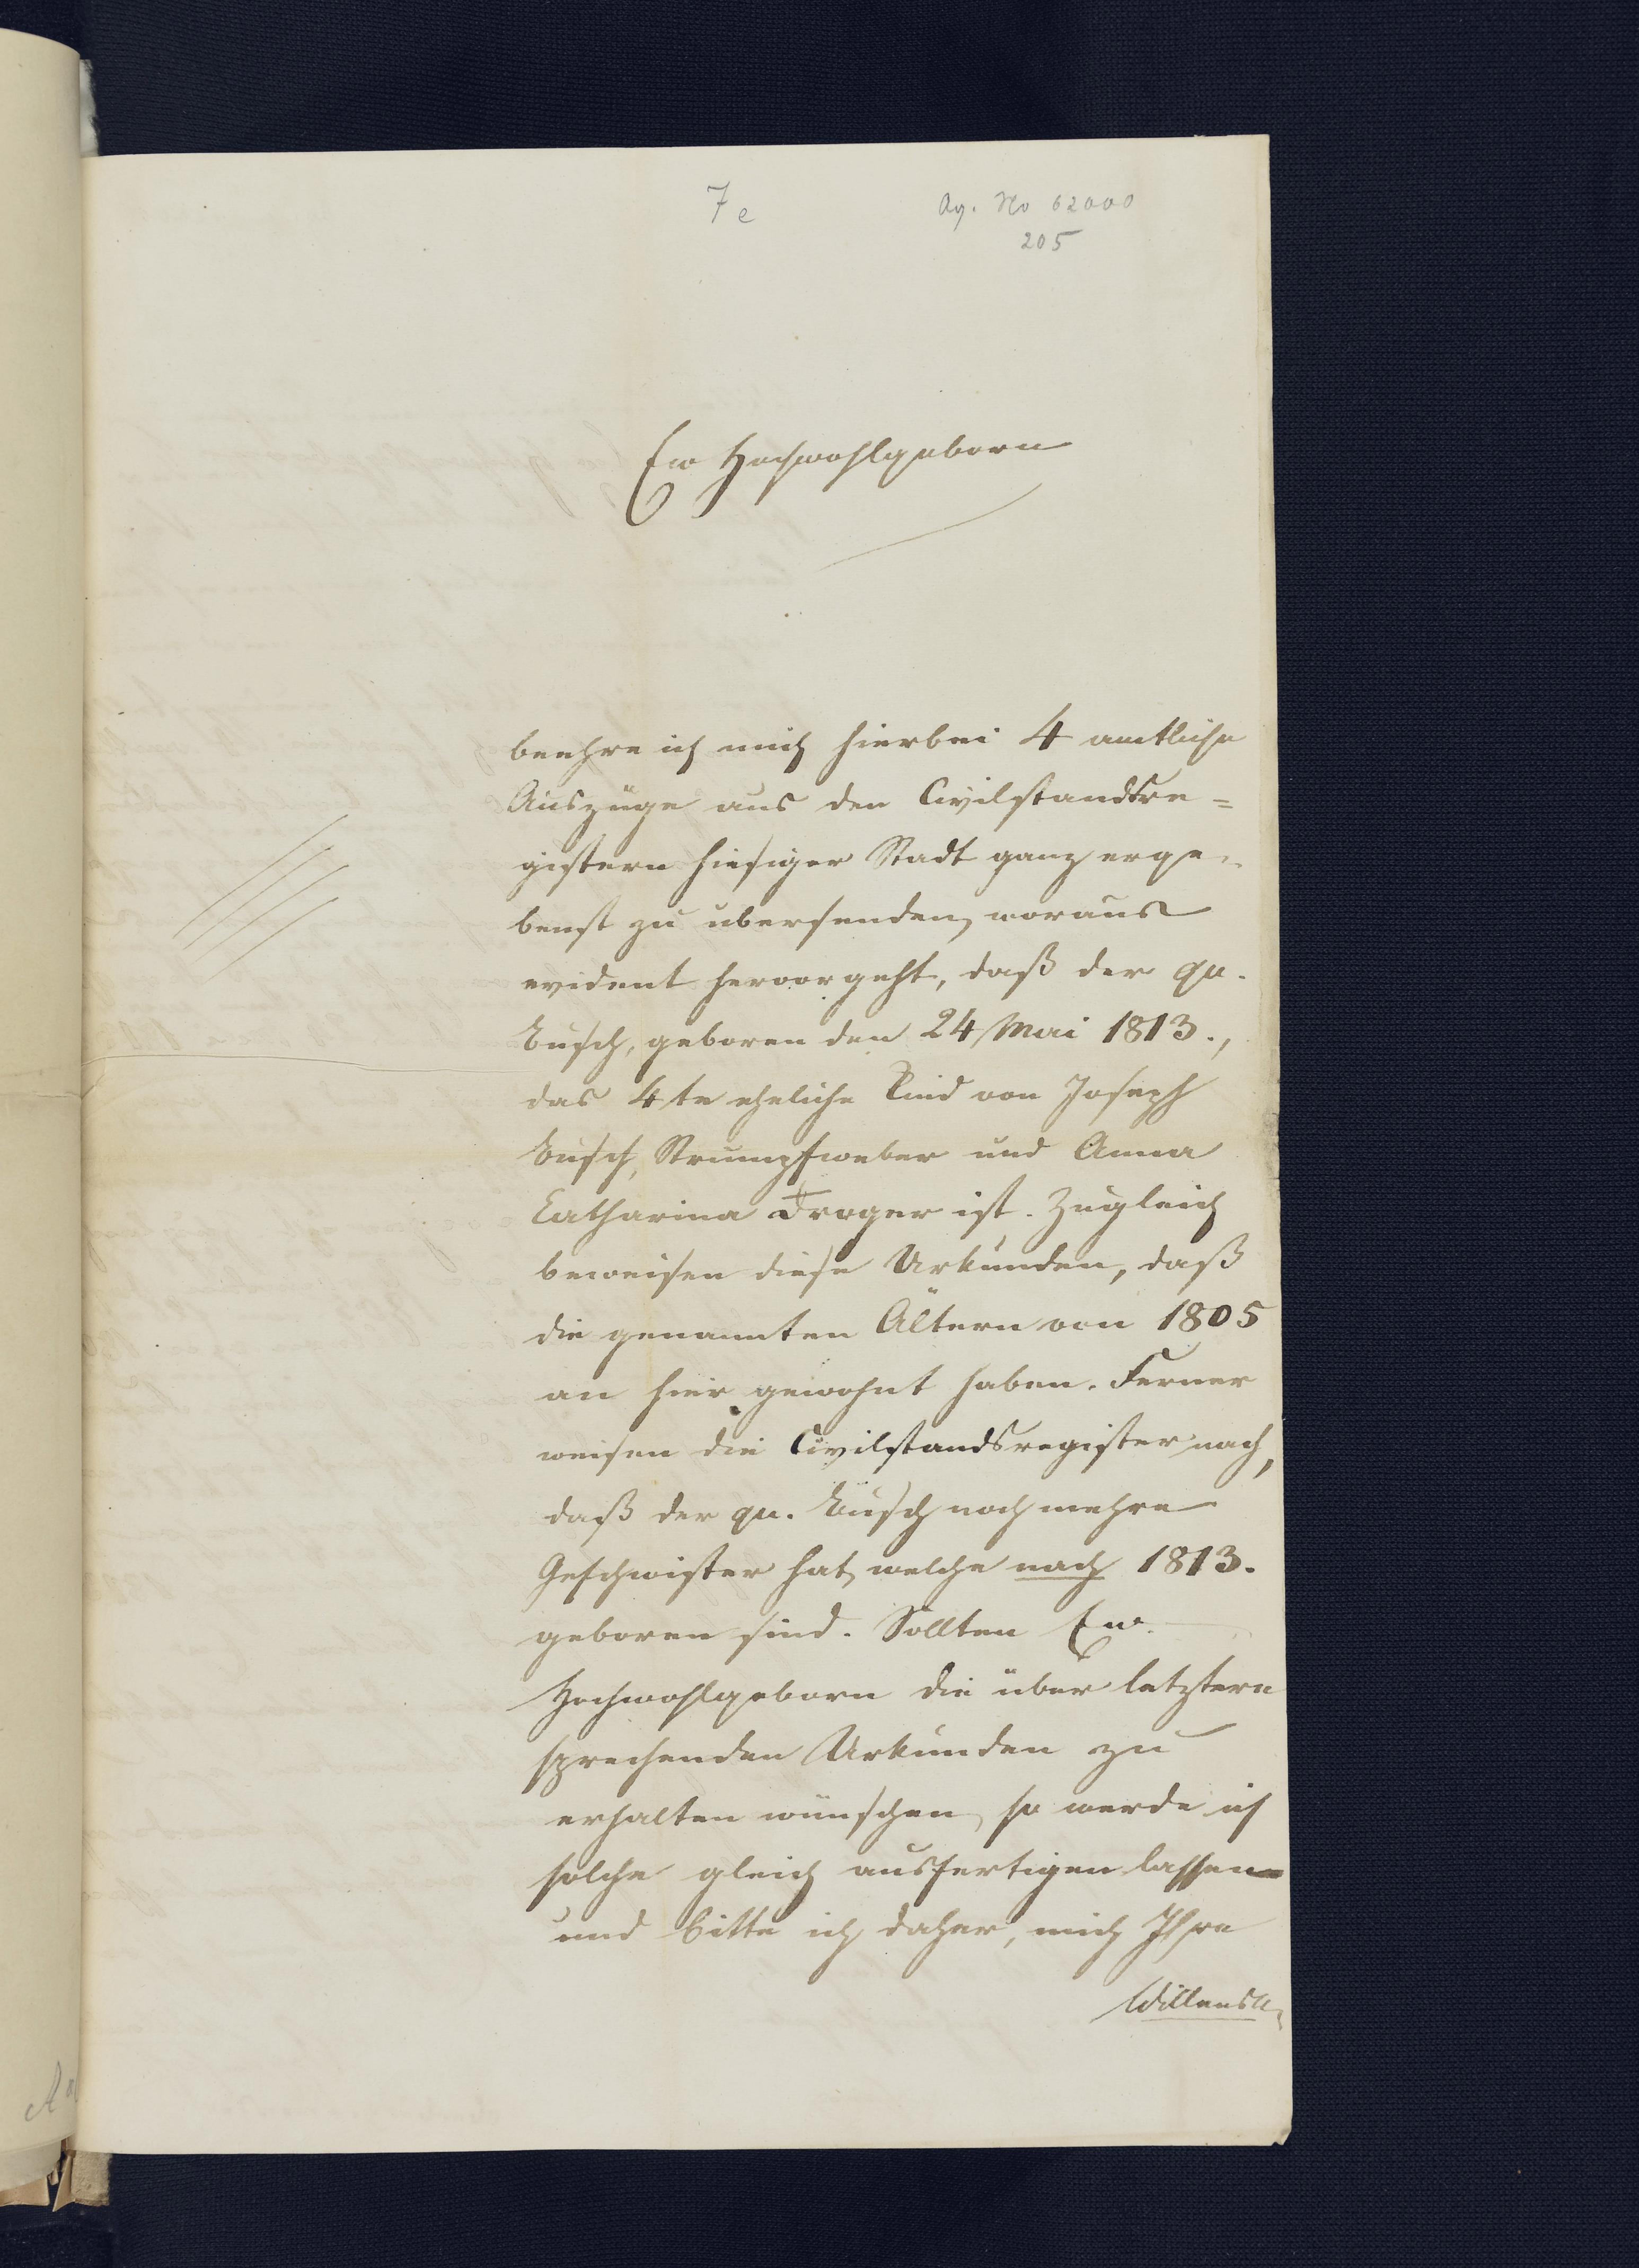 7e
Ag. No 62000
205
Ew Hochwohlgeborn
beehre ich mich hierbei 4 amtliche
Auszüge aus den Civilstandsre=
gistern hiesiger Stadt ganz erge-
benst zu übersenden, woraus
evident hervorgeht, daß der qu.
Busch, geboren den 24 Mai 1813.,
das 4te eheliche Kind von Joseph
Busch, Strumpfweber und Anna
Catharina Troger ist. Zugleich
beweisen diese Urkunden, daß
die genannten Ältern von 1805
an hier gewohnt haben. Ferner
weisen die Civilstandsregister nach,
daß der qu. Busch noch mehre
Geschwister hat, welche nach 1813.
geboren sind. Sollten Ew.
Hochwohlgeborn die über letztere
sprechenden Urkunden zu
erhalten wünschen, so werde ich
solche gleich ausfertigen lassen
und bitte ich daher, mich Ihre